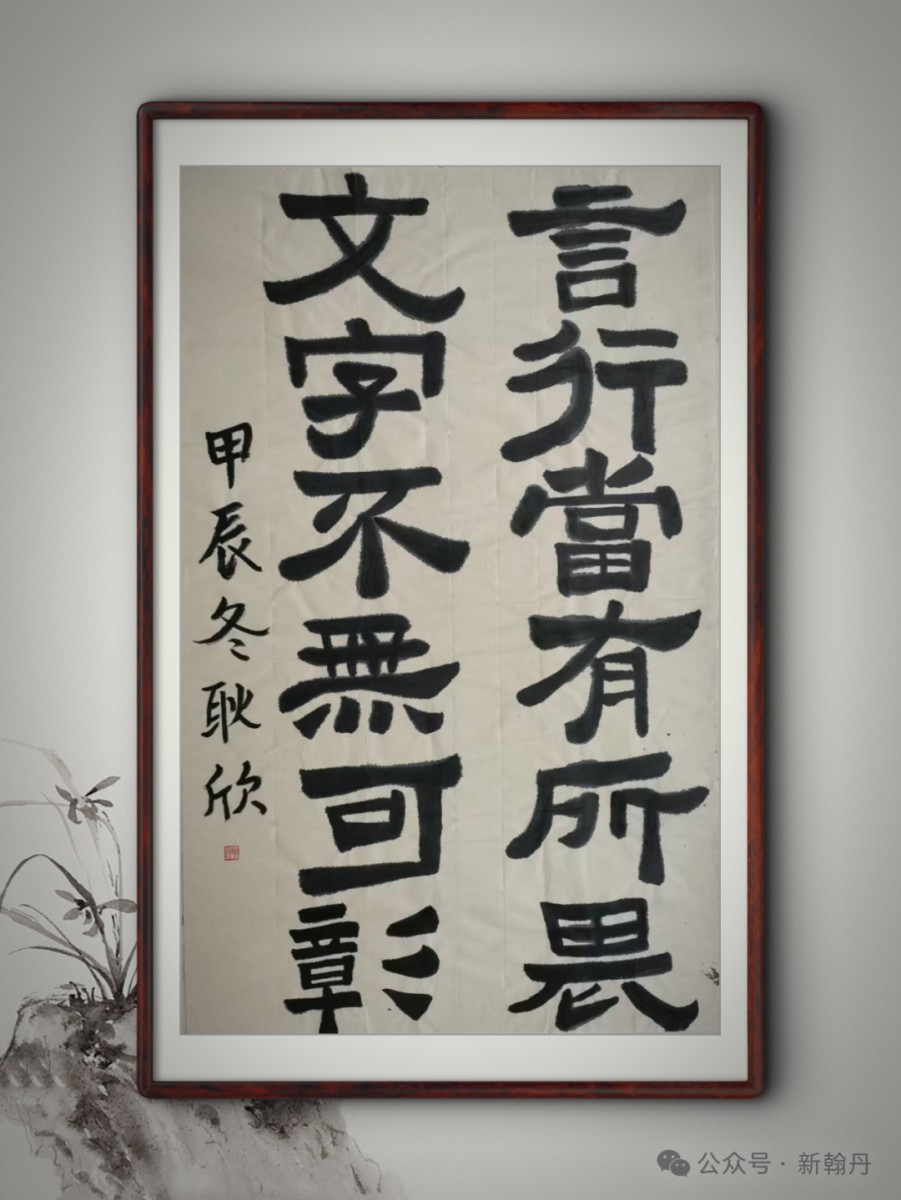 言行當有所畏
文字不無可彰
甲辰冬耿欣
公众号·新翰丹